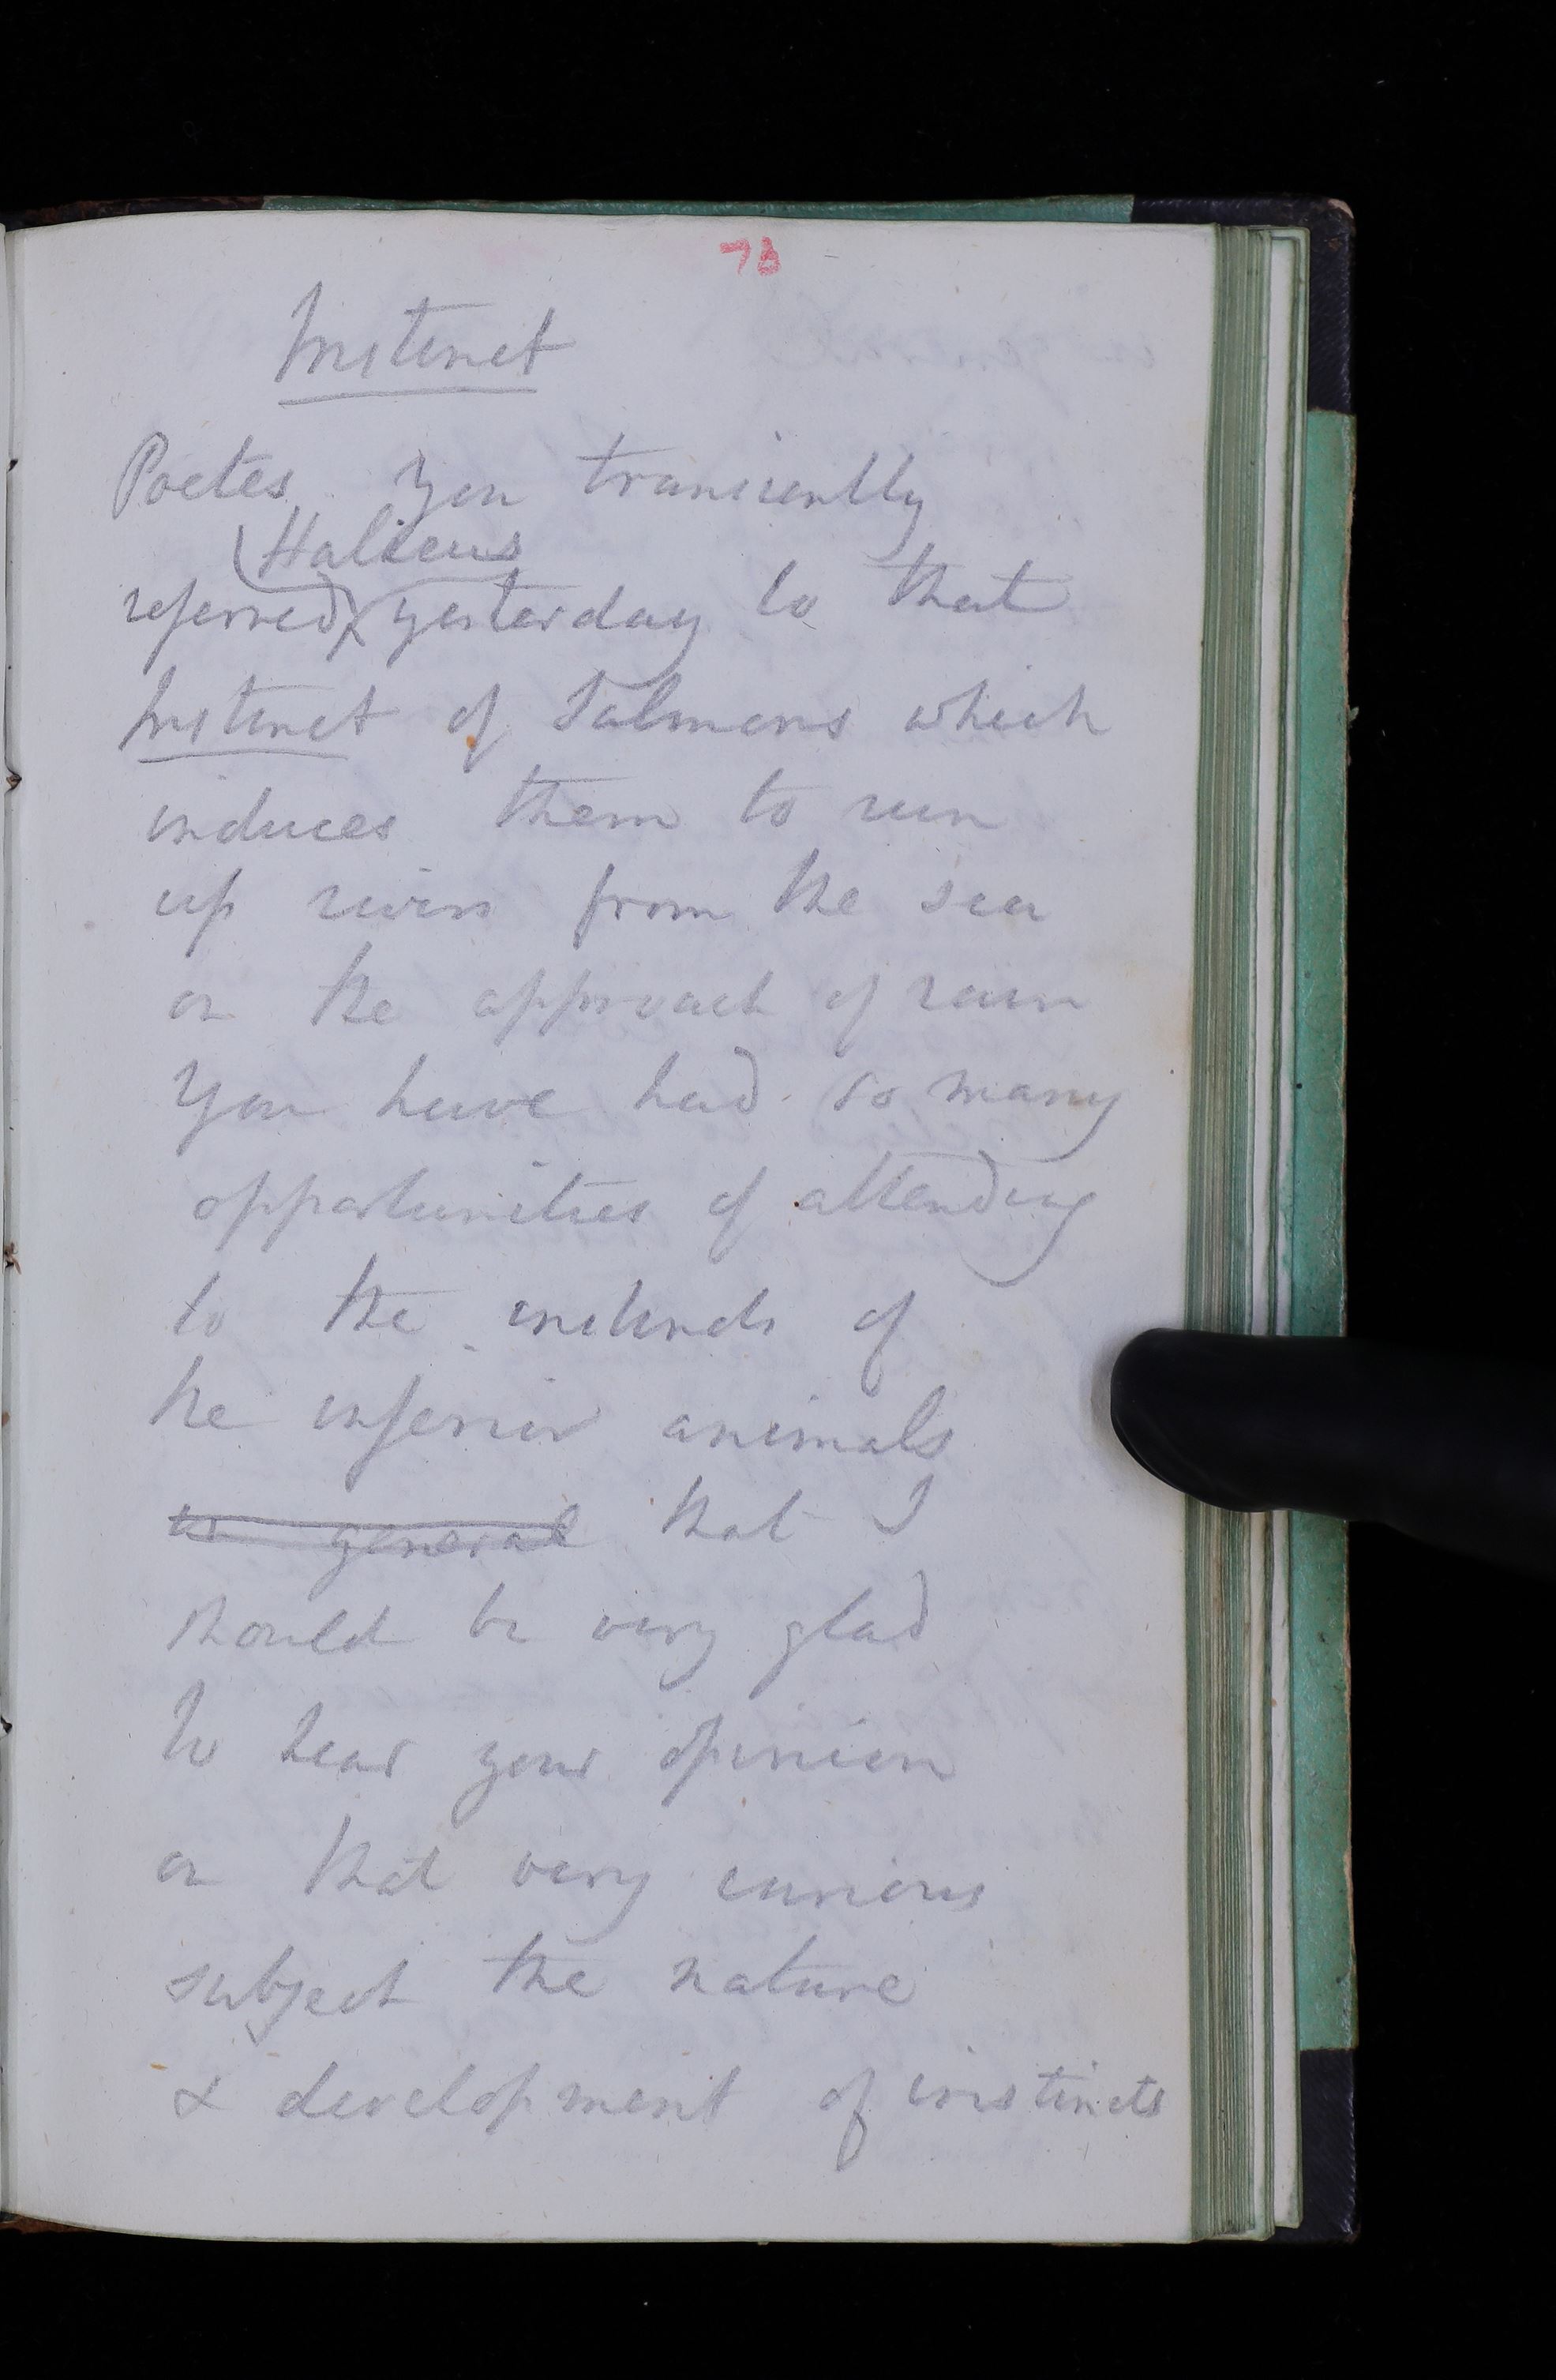 78
Instinct
Poetes you transiently
Halieus
referred yesterday to that
Instinct of Salmons which
induces them to run
up rivers from the sea
on the approach of rain
You have had so many
opportunities of attending
to the instincts of
the inferior animals
in general that I
should be very glad
to hear your opinion
on that very curious
subject the nature
& development of instincts